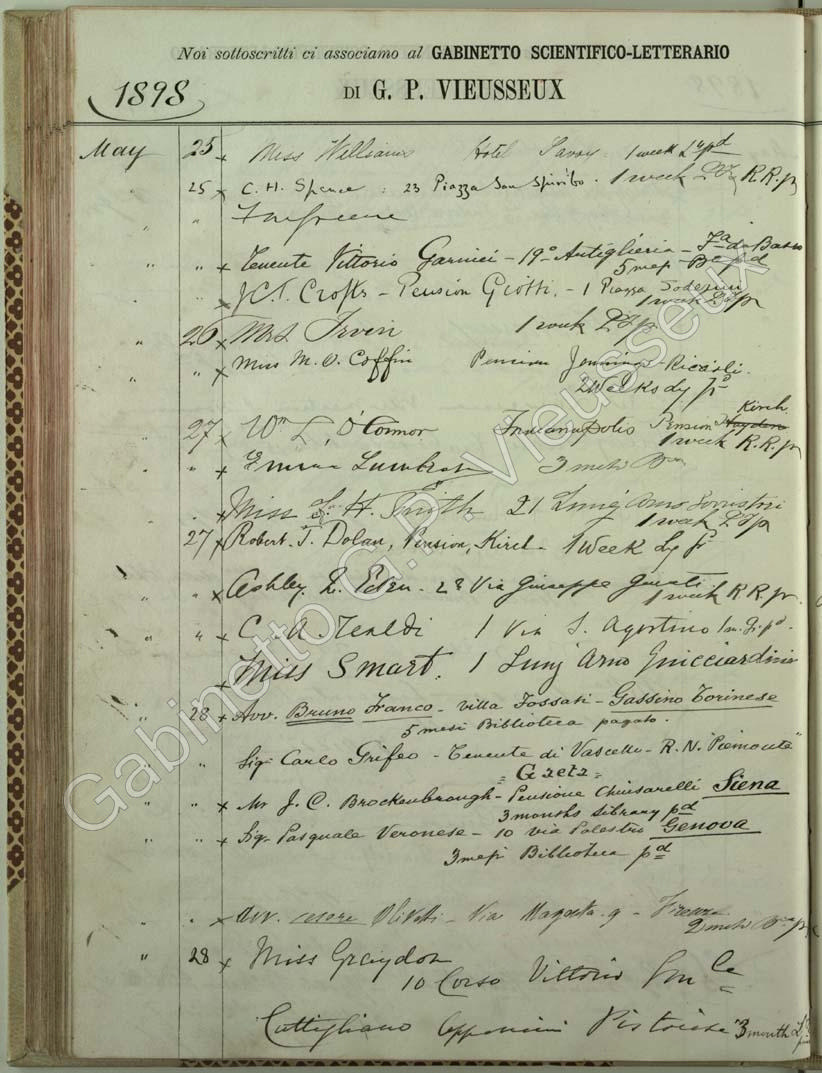 Noi sottoscritti ci associamo al GABINETTO SCIENTIFICO-LETTERARIO
1898
DI G. P. VIEUSSEUX
May 25 x Miss Williams Hotel Savoy 1 week pd
25 x C. H. Spence : 23 Piazza San Spirito. 1 week R.R. p
" "
" " x Tenente Vittorio Garnici - 19º Artiglieria - Basso
5 mesi Bca pd
" x J.C.T. Crofts - Pension Giotti. - 1 Piazza Soderini
1 week p
" 26 x Mrs. Irvin 1 week p
" x Miss M. O. Coffin Pension Jennings-Riccioli.
2 Weeks
" 27 x Wm L. O'Connor Indianapolis Pension Haydon Kirch
1 week R.R. p
" " x 3 mesi
" x Miss H. Smith 21 Lung'Arno Torrigiani
1 week p
27 x Robert. T. Dolan, Pension, Kirch - 1 Week
" " x Ashley 28 Via Giuseppe Giusti
1 week R.R. p
" " x C. A. Tealdi 1 Via S. Agostino 1 m. pd.
x Miss Smart. 1 Lung'Arno Guicciardini
" 28 x Avv. Bruno Franco - Villa Fossati - Gassino Torinese
5 mesi Biblioteca pagato.
" " Sig. Carlo Grifeo - Tenente di Vascello - R. N. "Piemonte"
= Gaeta =
" " x Mr J. C. Brockenbrough - Pensione Chiusarelli Siena
3 months library pd
" " x Sig. Pasquale Veronese - 10 via Palestro Genova
3 mesi Biblioteca pd
" " x Avv. Cesare Olivetti - Via Magenta 9 - Firenze
2 mesi p
" 28 x Miss Graydon
10 Corso Vittorio Emle
Cutigliano Appennini Pistoiese 3 month
Gabinetto G.P. Vieusseux